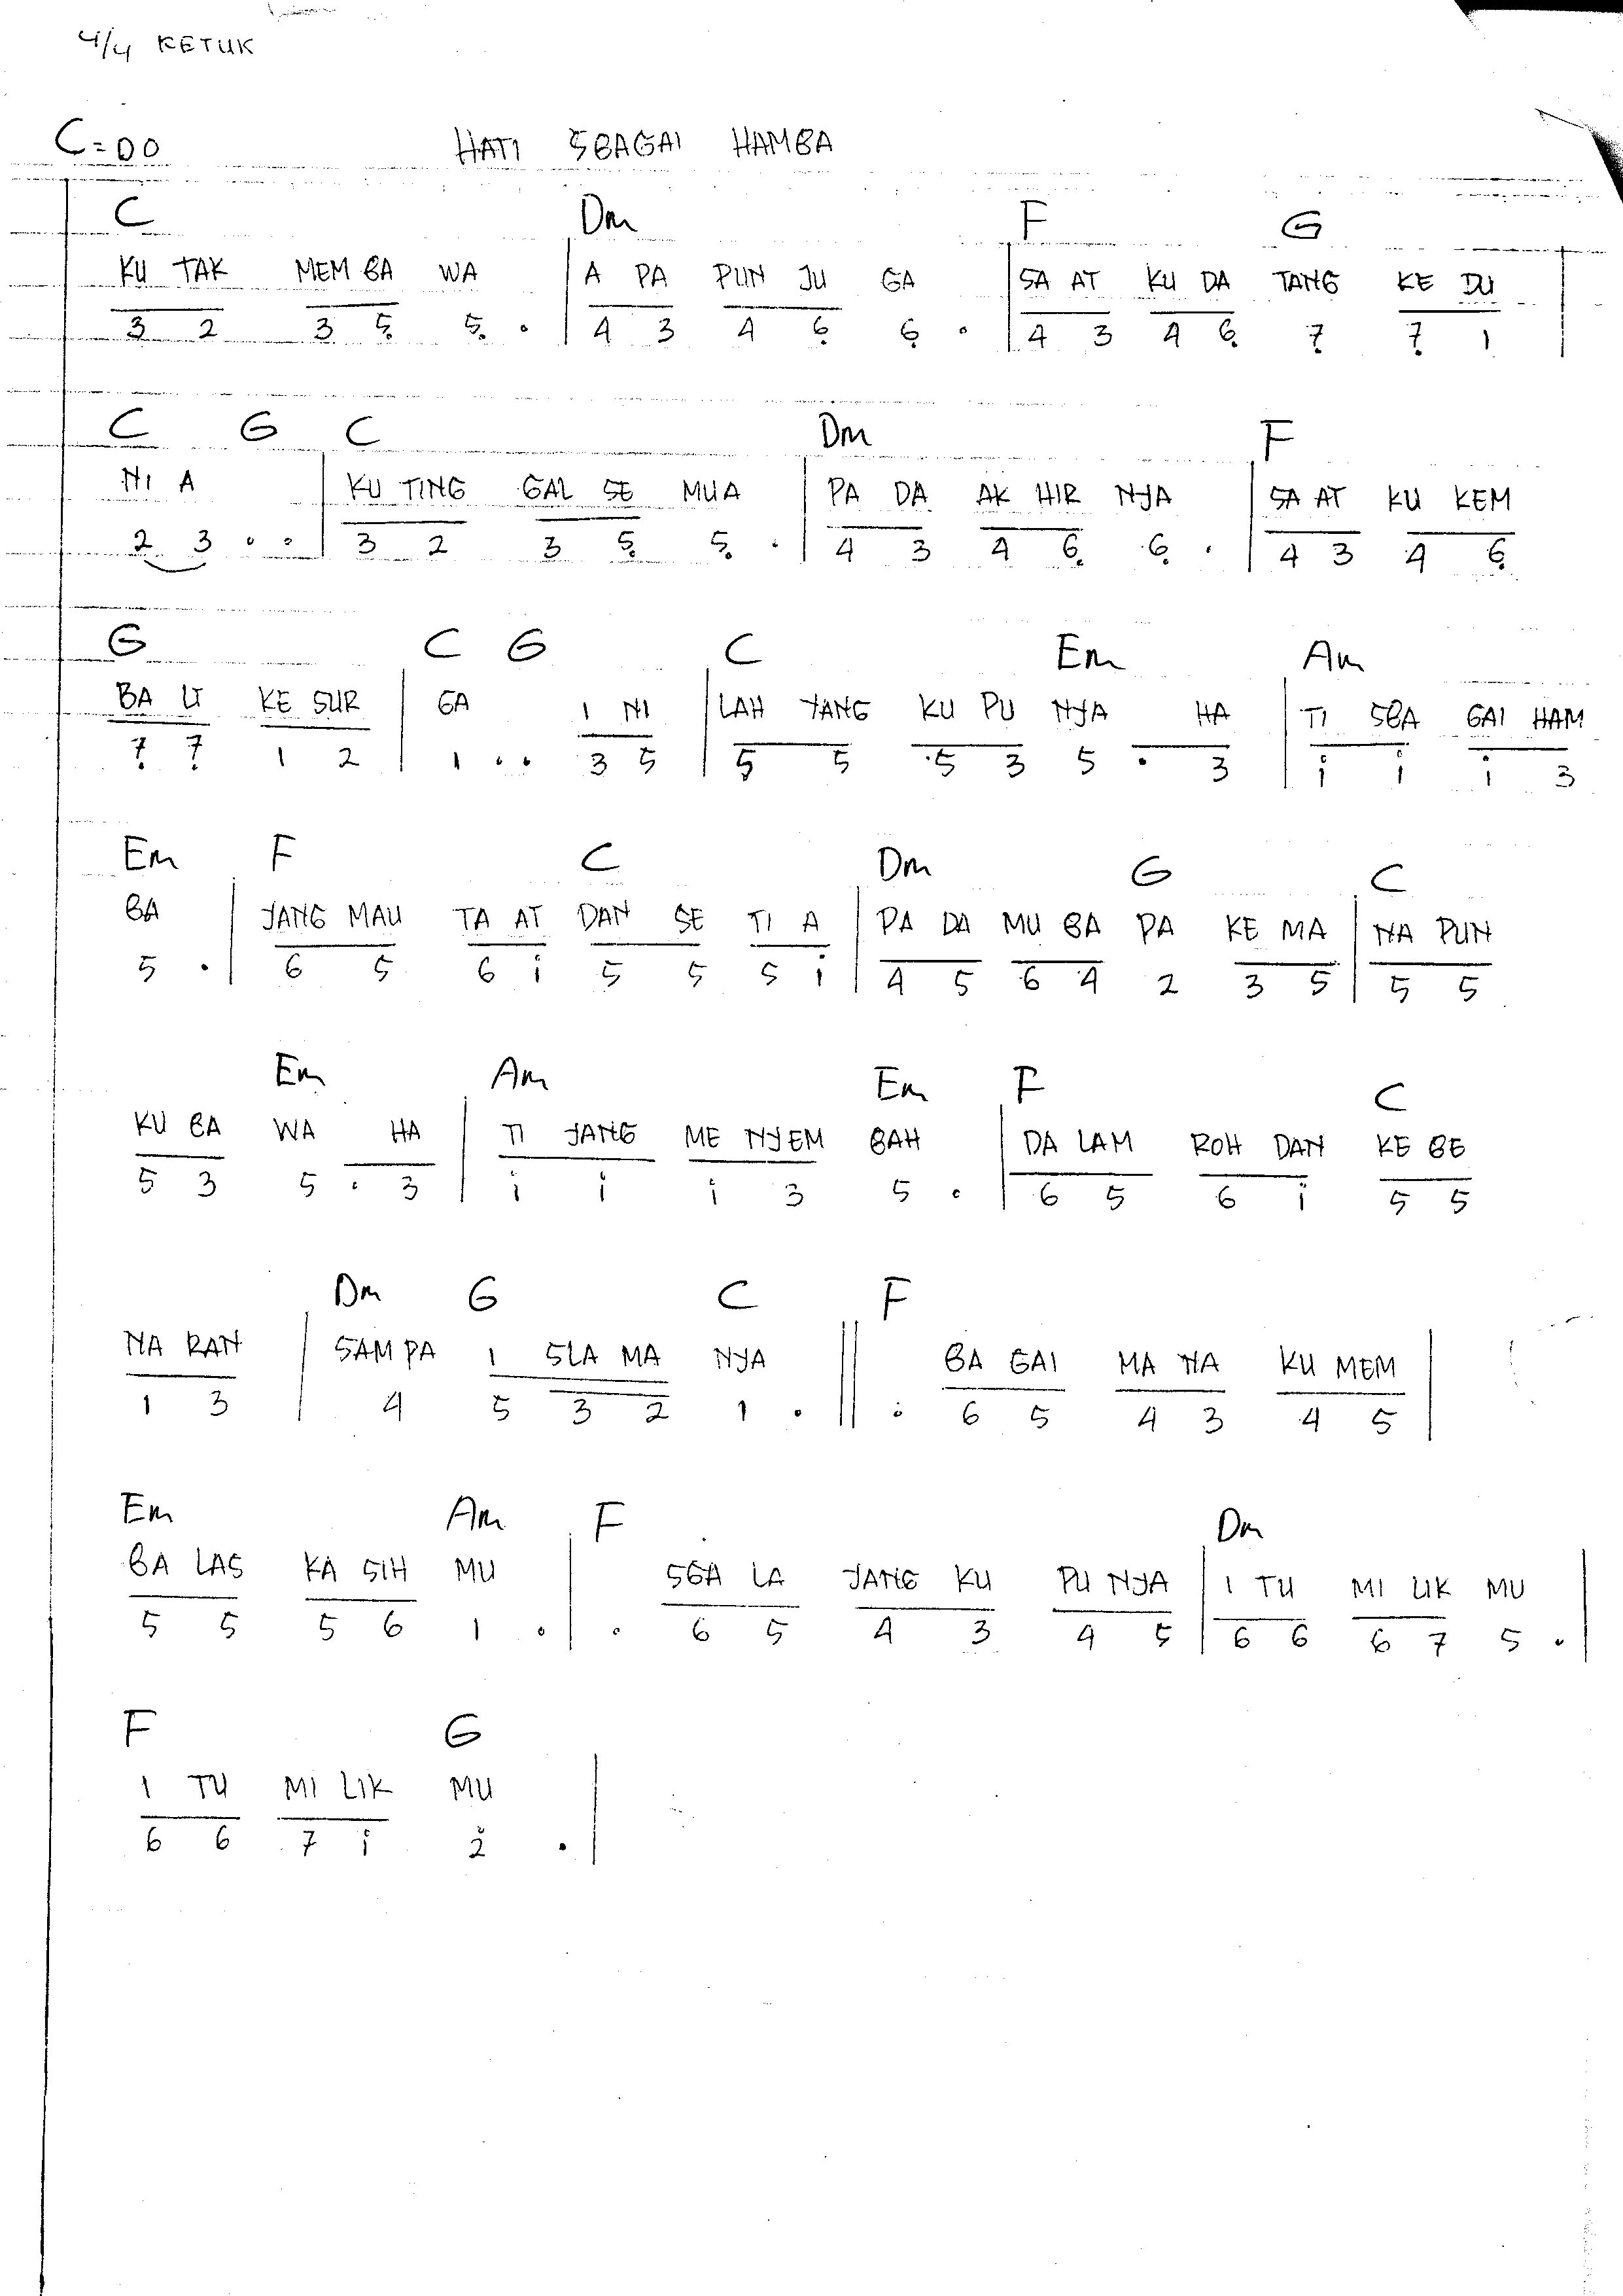 4/4 KETUK
C=DO HATI SBAGAI HAMBA
C Dm F G
KU TAK MEM BA WA | A PA PUN JU GA | SA AT KU DA TANG KE DU |
3 2 3 5̣ 5̣ . | 4 3 4 6̣ 6̣ . | 4 3 4 6̣ 7̣ 7̣ 1 |
C G C Dm F
NI A | KU TING GAL SE MUA | PA DA AK HIR NYA | SA AT KU KEM
2 3 . . | 3 2 3 5̣ 5̣ . | 4 3 4 6̣ 6̣ . | 4 3 4 6̣
G C G C Em Am
BA LI KE SUR | GA I NI | LAH YANG KU PU NYA HA | TI SBA GAI HAM
7̣ 7̣ 1 2 | 1 . . 3 5 | 5 5 5 3 5 . 3 | i i i 3
Em F C Dm G C
BA | YANG MAU TA AT DAN SE TI A | PA DA MU BA PA KE MA | NA PUN
5 . | 6 5 6 i 5 5 5 i | 4 5 6 4 2 3 5 | 5 5
Em Am Em F C
KU BA WA HA | TI YANG ME NYEM BAH | DA LAM ROH DAN KE BE
5 3 5 . 3 | i i i 3 5 . | 6 5 6 i 5 5
Dm G C F
NA RAN | SAM PA I SLA MA NYA || BA GAI MA NA KU MEM |
1 3 | 4 5 3 2 1 . || . 6 5 4 3 4 5 |
Em Am F Dm
BA LAS KA SIH MU | SGA LA YANG KU PU NYA | I TU MI LIK MU |
5 5 5 6 1 . | . 6 5 4 3 4 5 | 6 6 6 7 5 . |
F G
I TU MI LIK MU |
6 6 7 i 2̇ . |